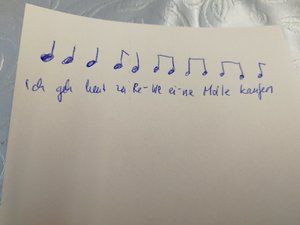 Ich geh heut zu Re-We ei-ne Möle kaufen